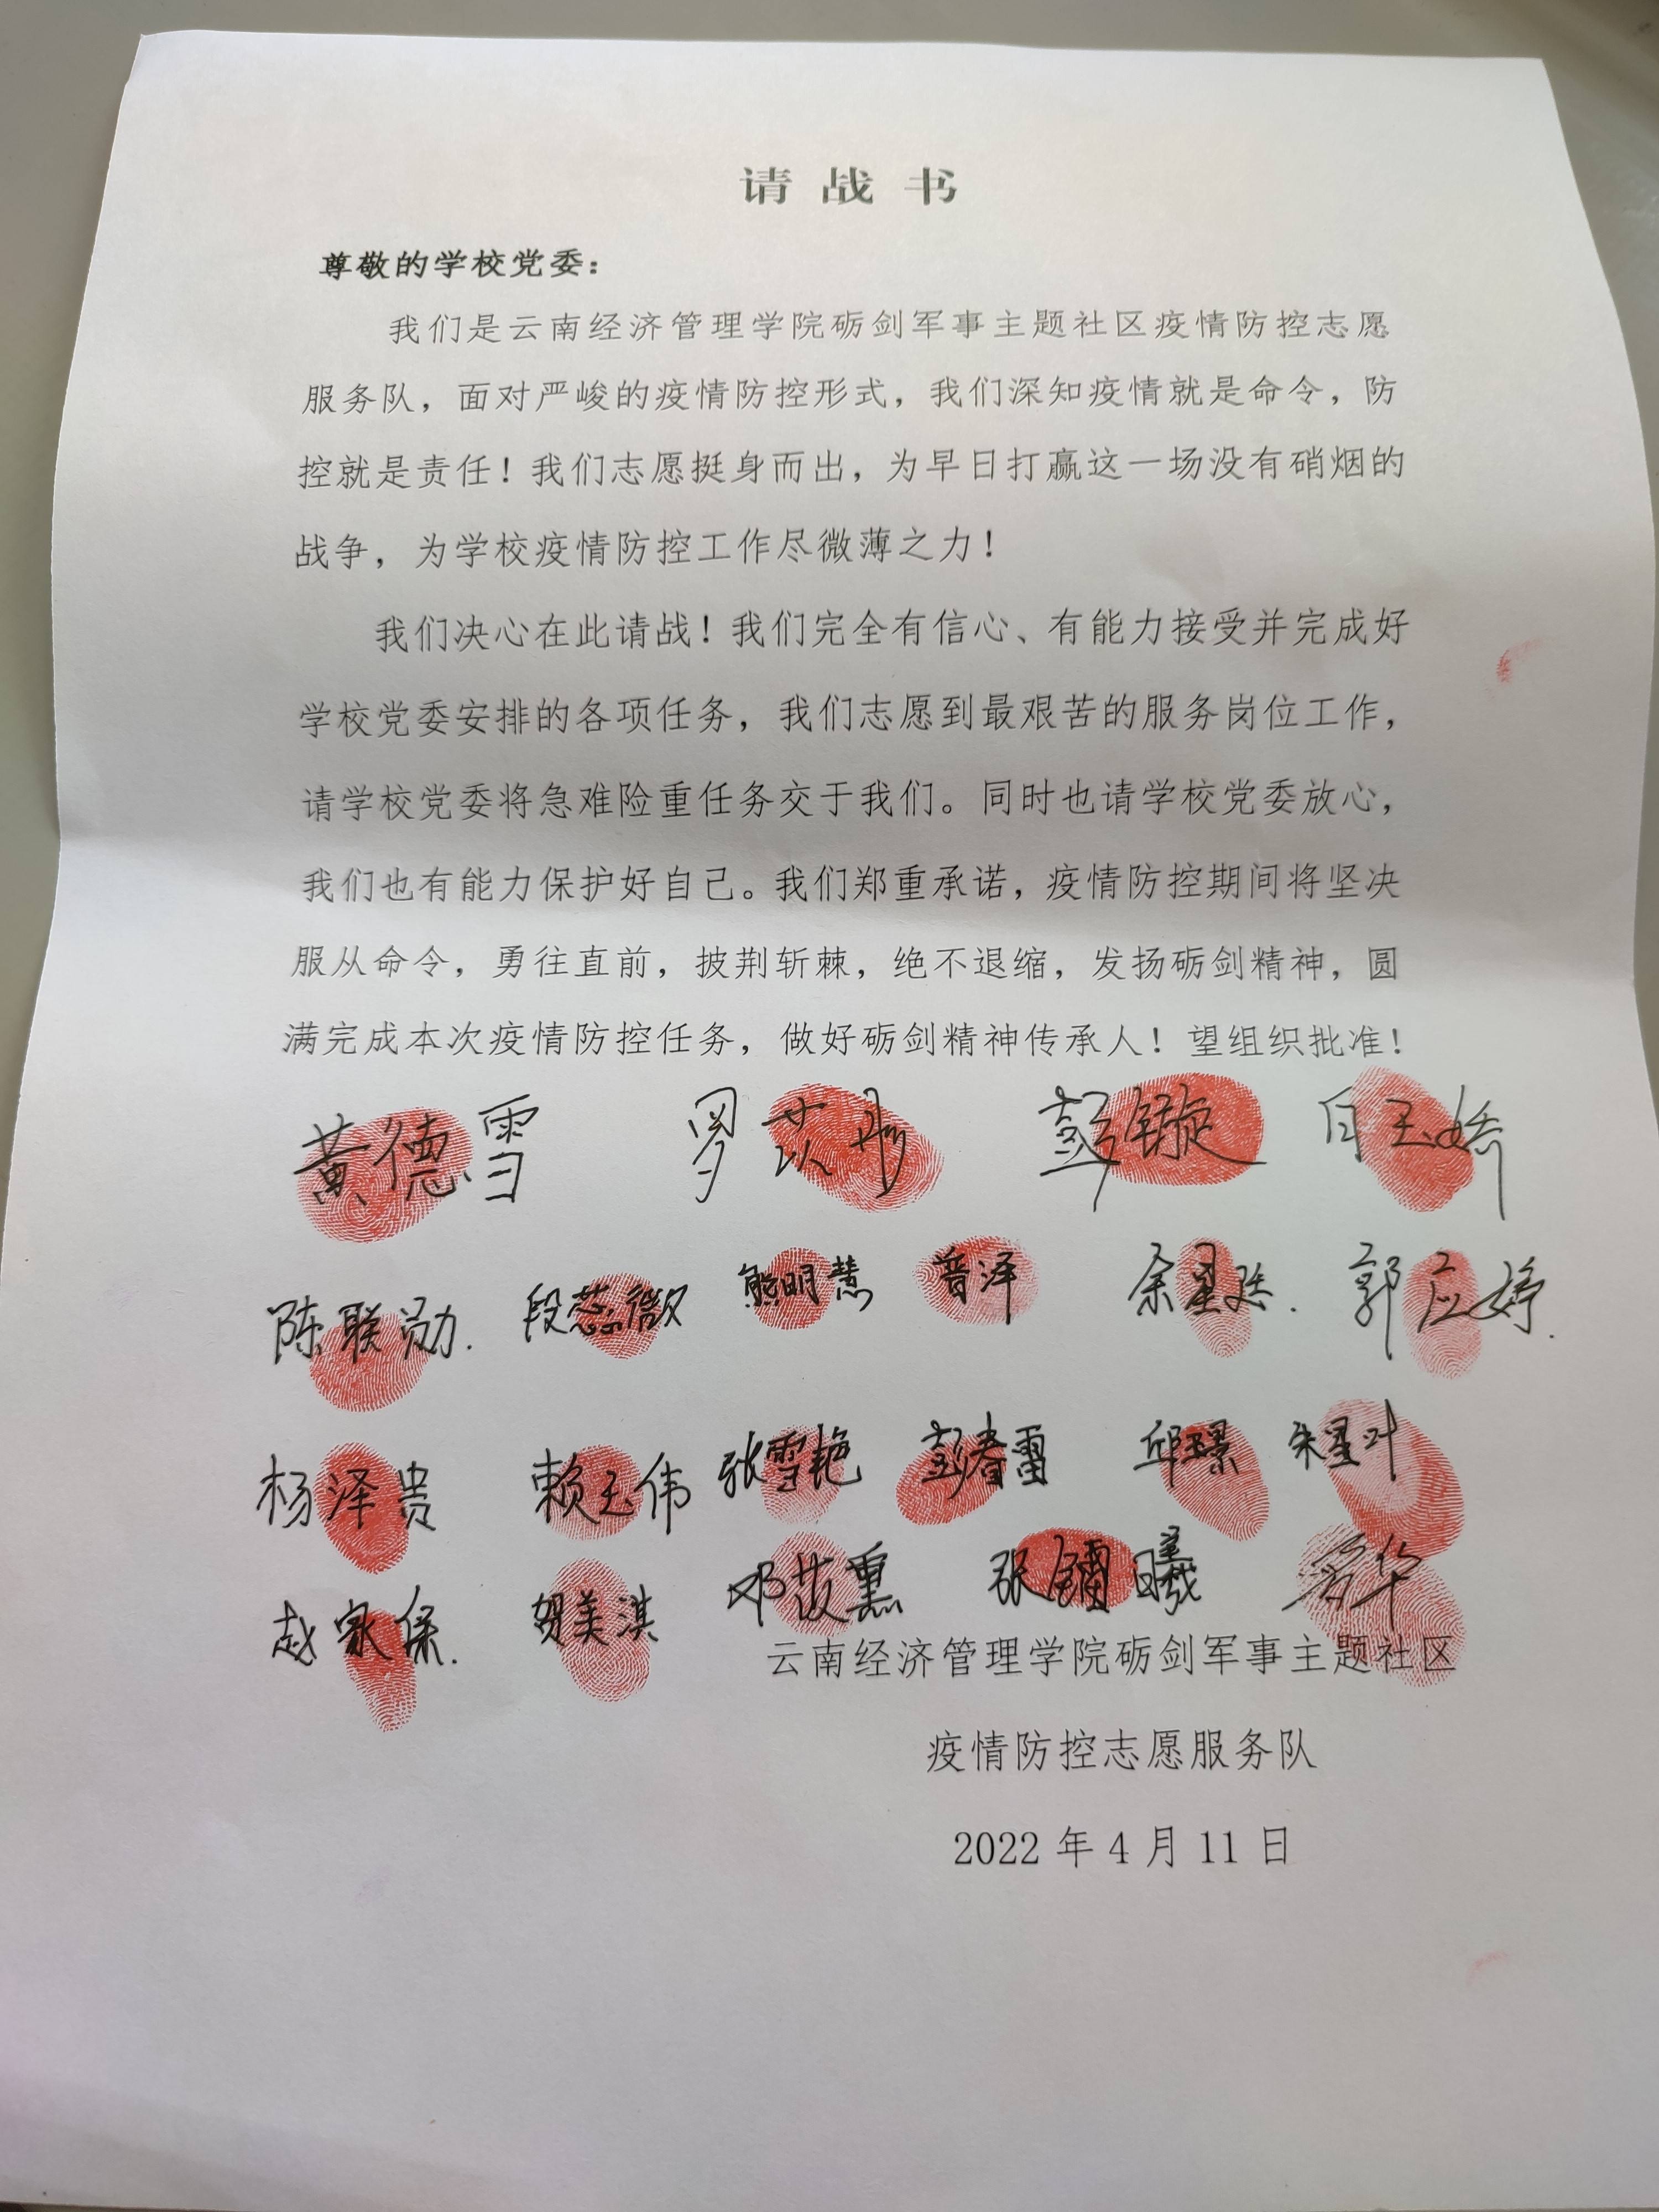 请战书
尊敬的学校党委：
我们是云南经济管理学院砺剑军事主题社区疫情防控志愿
服务队，面对严峻的疫情防控形式，我们深知疫情就是命令，防
控就是责任！我们志愿挺身而出，为早日打赢这一场没有硝烟的
战争，为学校疫情防控工作尽微薄之力！
我们决心在此请战！我们完全有信心、有能力接受并完成好
学校党委安排的各项任务，我们志愿到最艰苦的服务岗位工作，
请学校党委将急难险重任务交于我们。同时也请学校党委放心，
我们也有能力保护好自己。我们郑重承诺，疫情防控期间将坚决
服从命令，勇往直前，披荆斩棘，绝不退缩，发扬砺剑精神，圆
满完成本次疫情防控任务，做好砺剑精神传承人！望组织批准！
黄德雪 罗苡彤 彭镟 白玉娇
陈联勋. 段蕊微 熊明慧 普泽 余星 郭应婷.
杨泽贵 赖玉伟 张雪艳 彭春雷 邱璟 朱星叶
赵家保. 胡美淇 邓苡熏 张镭曦 华
云南经济管理学院砺剑军事主题社区
疫情防控志愿服务队
2022年4月11日